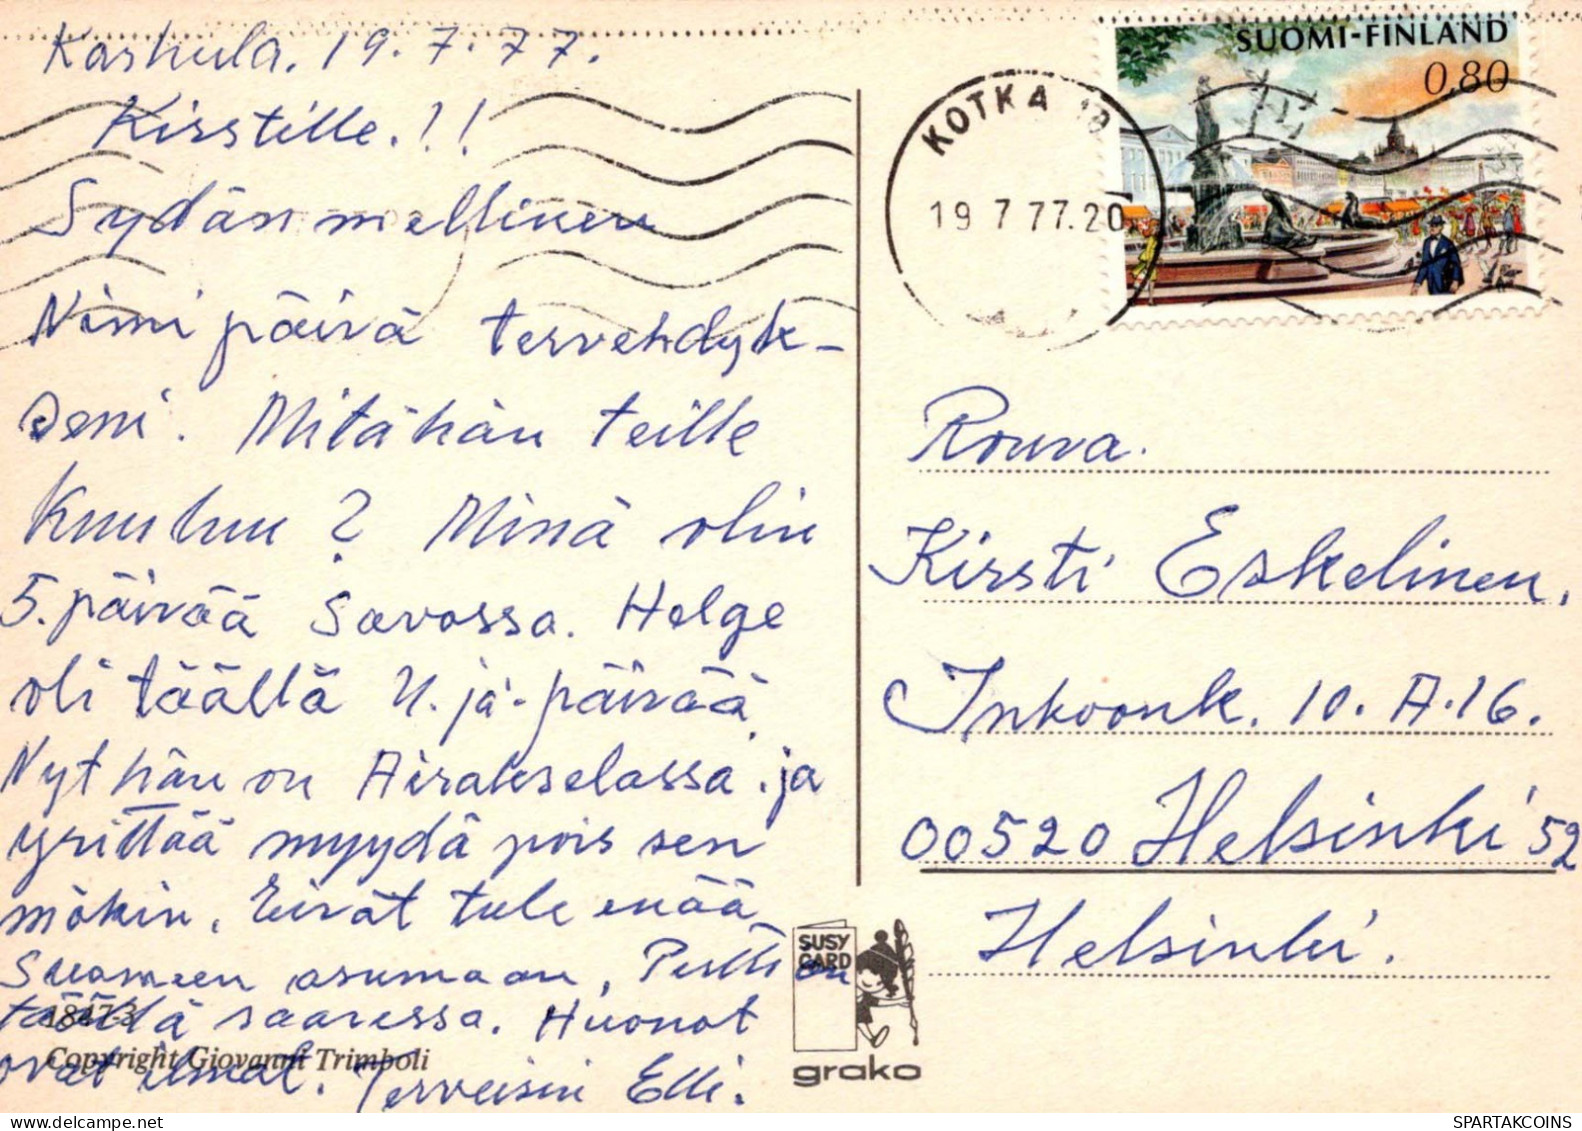 Karhula. 19.7.77.
Kirstille.!!
Sydän mellinen
Nimi päivä tervehdyk-
seni. Mitähän teille
Kuuluu? Minä olin
5. päivää Savossa. Helge
oli täällä 4. jä. päivää
Nyt hän on Airakselassa. ja
yrittää myydä pois sen
mökin. Eivät tule enää
Suomeen asumaan. Pertti on
täällä saaressa. Huonot
ovat ilmat. Terveisin Elli.
18473
Copyright Giovanni Trimboli
SUOMI-FINLAND
0,80
KOTKA 10
19 7 77.20
Rouva.
Kirsti Eskelinen.
Inkoonk. 10. A.16.
00520 Helsinki 52
Helsinki.
SUSY
CARD
grako
SPARTAKCOINS.COM